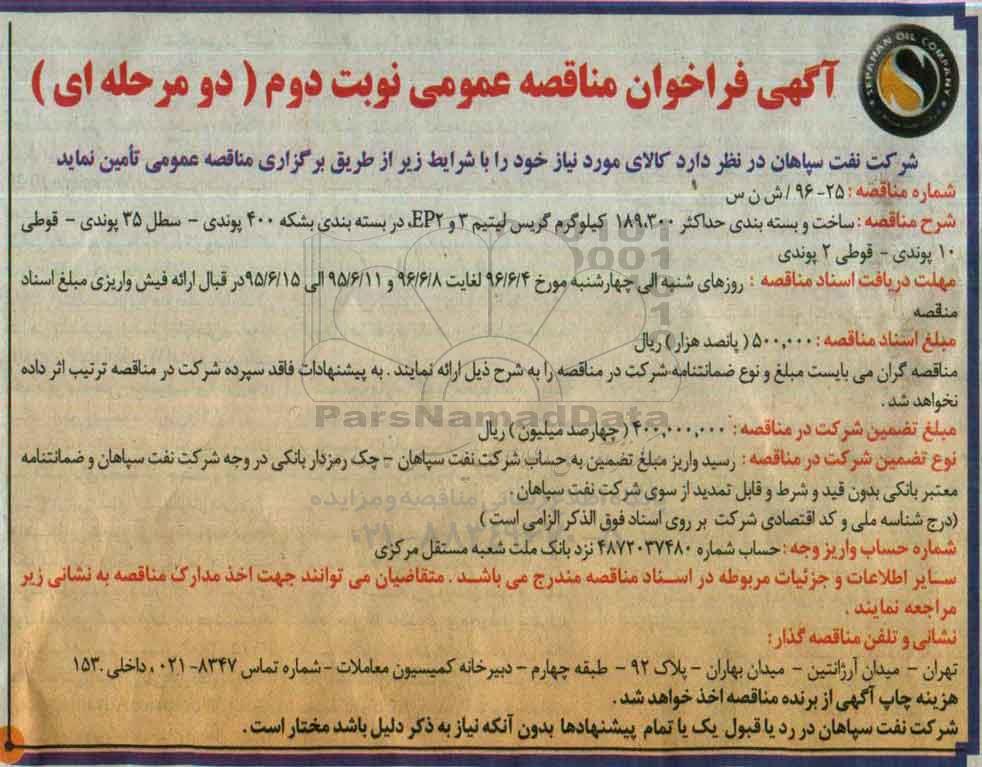 SEPAHAN OIL COMPANY
آگهی فراخوان مناقصه عمومی نوبت دوم ( دو مرحله ای )
شرکت نفت سپاهان در نظر دارد کالای مورد نیاز خود را با شرایط زیر از طریق برگزاری مناقصه عمومی تأمین نماید
شماره مناقصه : ۲۵-۹۶ / ش ن س
شرح مناقصه : ساخت و بسته بندی حداکثر ۱۸۹،۳۰۰ کیلوگرم گریس لیتیم ۳ و EP۲، در بسته بندی بشکه ۴۰۰ پوندی - سطل ۳۵ پوندی - قوطی
۱۰ پوندی - قوطی ۲ پوندی
مهلت دریافت اسناد مناقصه : روزهای شنبه الی چهارشنبه مورخ ۹۶/۶/۴ لغایت ۹۶/۶/۸ و ۹۵/۶/۱۱ الی ۹۵/۶/۱۵در قبال ارائه فیش واریزی مبلغ اسناد
مناقصه
مبلغ اسناد مناقصه : ۵۰۰,۰۰۰ ( پانصد هزار ) ریال
مناقصه گران می بایست مبلغ و نوع ضمانتنامه شرکت در مناقصه را به شرح ذیل ارائه نمایند . به پیشنهادات فاقد سپرده شرکت در مناقصه ترتیب اثر داده
نخواهد شد .
ParsNamadData
مبلغ تضمین شرکت در مناقصه : ۴۰۰,۰۰۰,۰۰۰ ( چهارصد میلیون ) ریال
نوع تضمین شرکت در مناقصه : رسید واریز مبلغ تضمین به حساب شرکت نفت سپاهان - چک رمزدار بانکی در وجه شرکت نفت سپاهان و ضمانتنامه
معتبر بانکی بدون قید و شرط و قابل تمدید از سوی شرکت نفت سپاهان.
(درج شناسه ملی و کد اقتصادی شرکت بر روی اسناد فوق الذکر الزامی است )
شماره حساب واریز وجه : حساب شماره ۴۸۷۲۰۳۷۴۸۰ نزد بانک ملت شعبه مستقل مرکزی
سایر اطلاعات و جزئیات مربوطه در اسناد مناقصه مندرج می باشد . متقاضیان می توانند جهت اخذ مدارک مناقصه به نشانی زیر
مراجعه نمایند .
نشانی و تلفن مناقصه گذار:
تهران - میدان آرژانتین - میدان بهاران - پلاک ۹۲ - طبقه چهارم - دبیرخانه کمیسیون معاملات - شماره تماس ۸۳۴۷-۰۲۱ ، داخلی ۱۵۳.
هزینه چاپ آگهی از برنده مناقصه اخذ خواهد شد .
شرکت نفت سپاهان در رد یا قبول یک یا تمام پیشنهادها بدون آنکه نیاز به ذکر دلیل باشد مختار است .